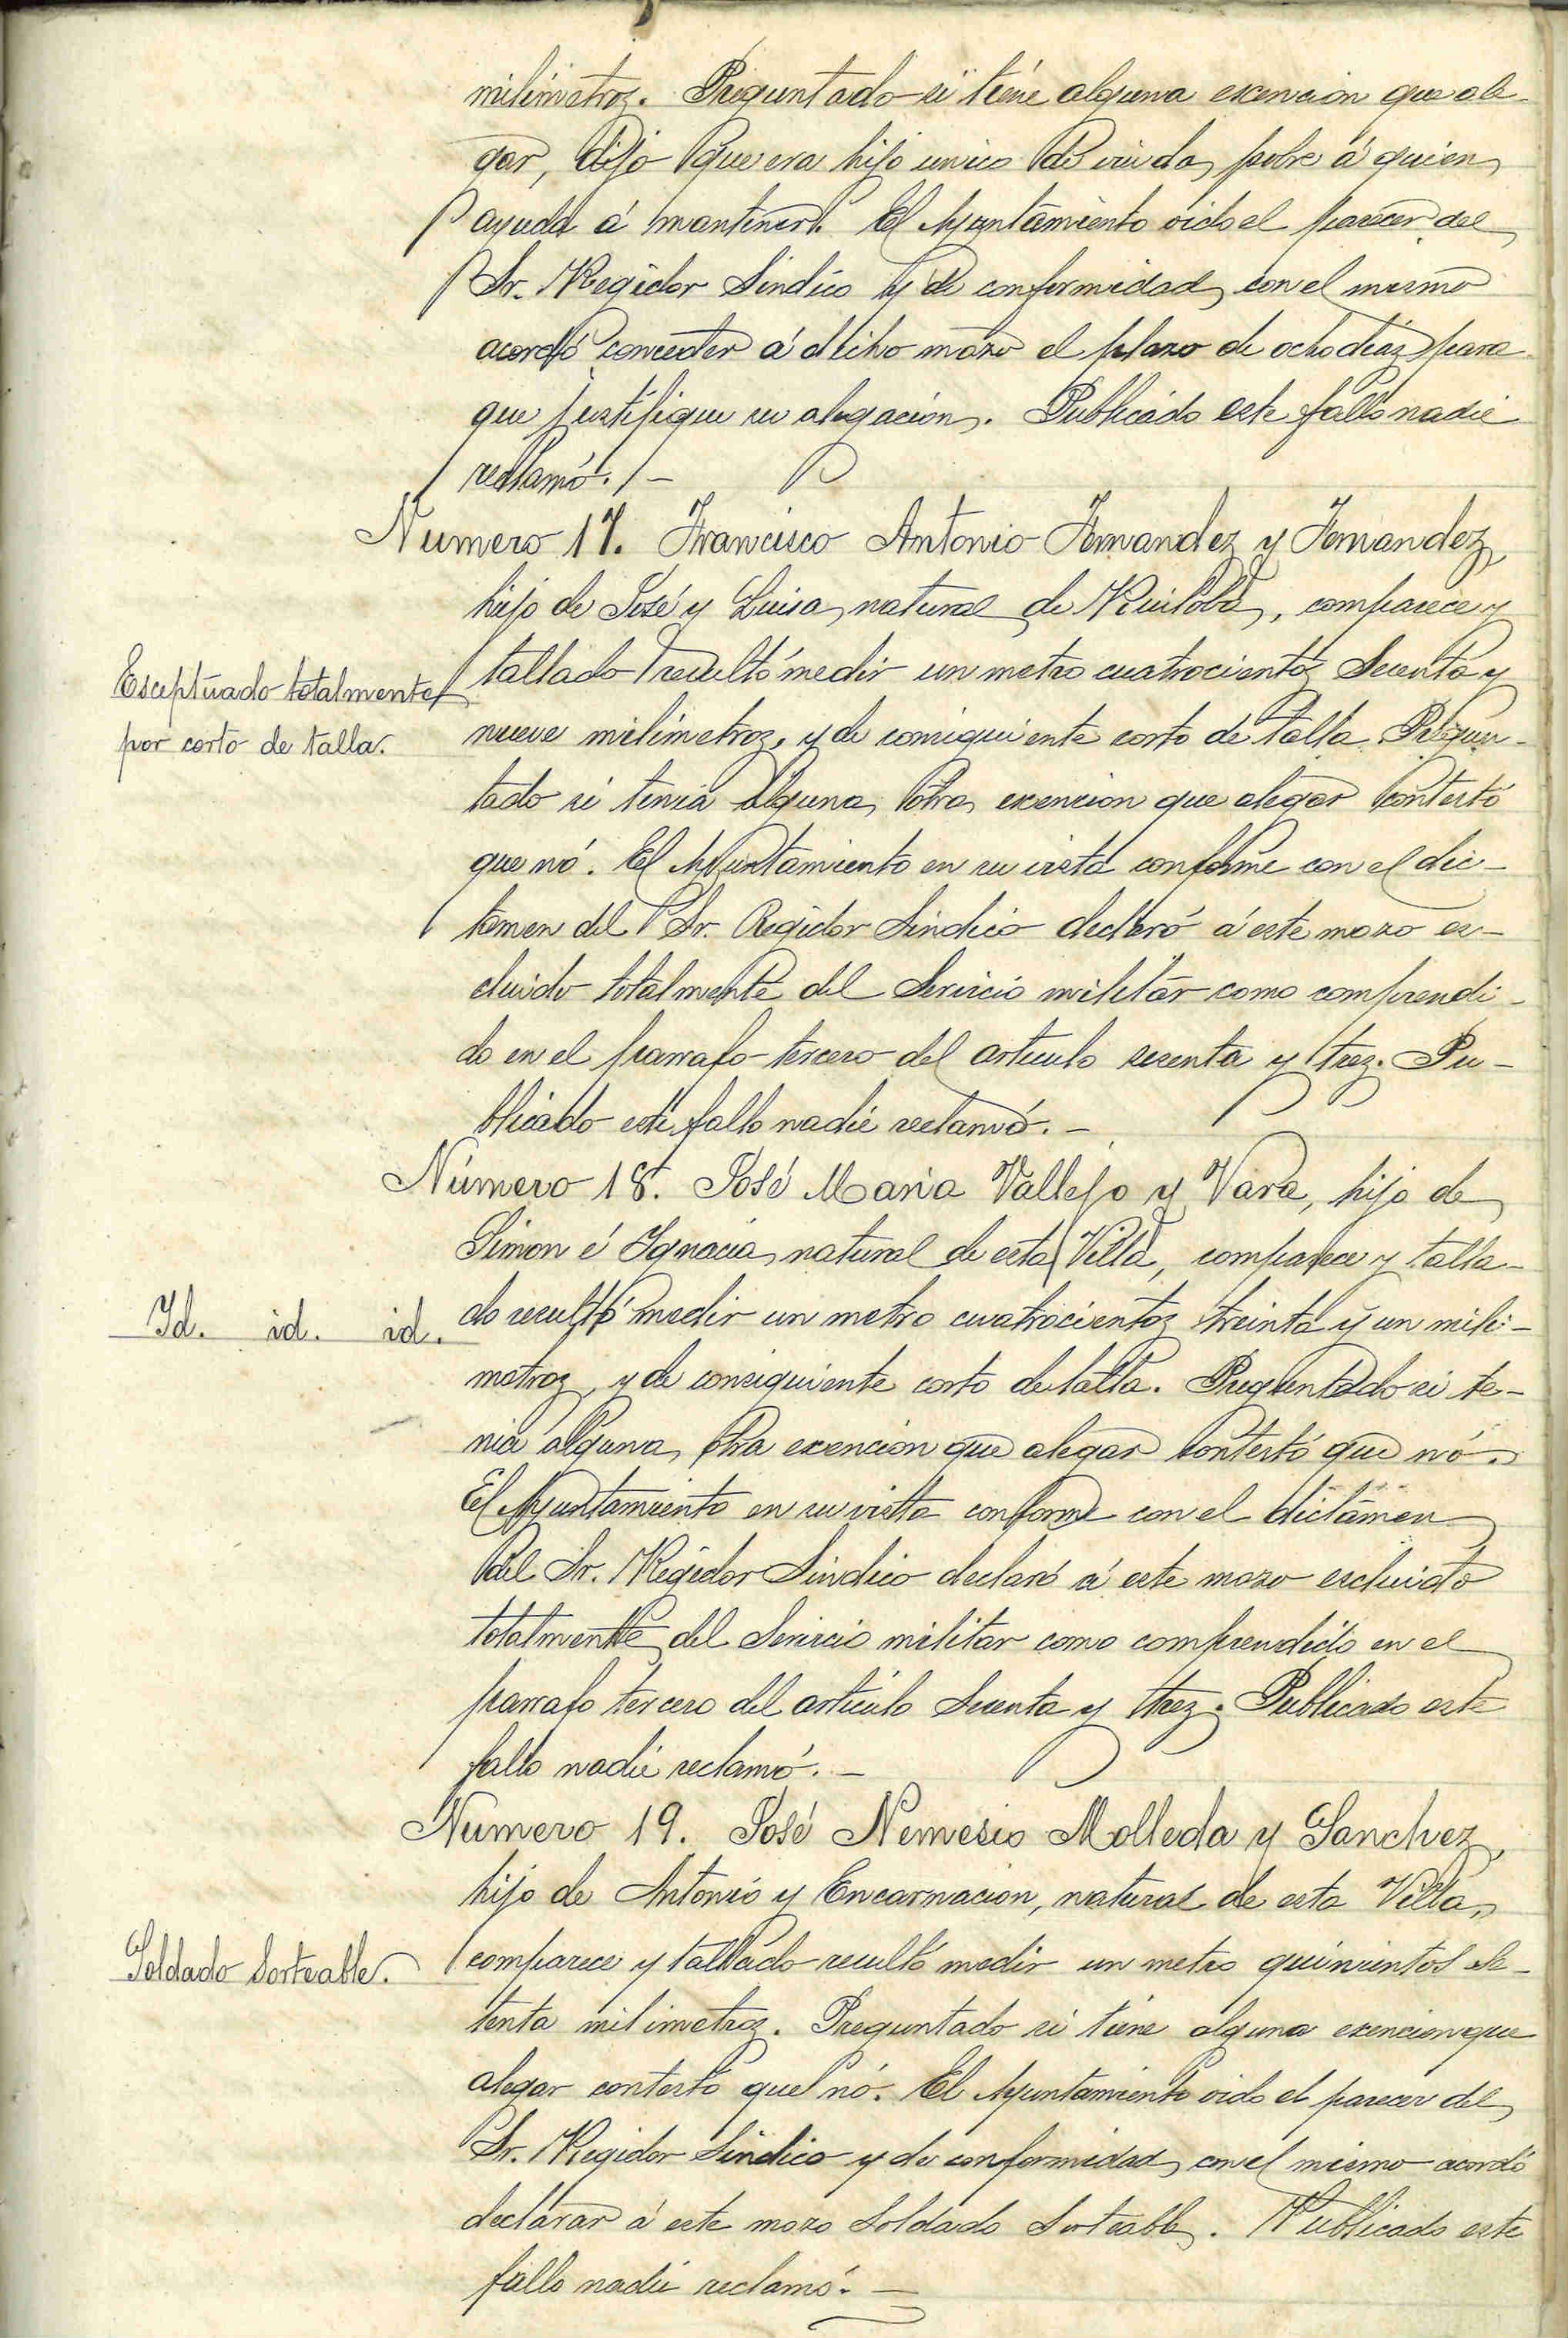 milimetroz. Preguntado si tiene alguna esencion que ale-
gar, dijo que era hijo unico de viuda pobre á quien
ayuda á mantener. El Ayuntamiento oido el parecer del
Sr. Regidor Sindico y de conformidad con el mismo
acordó conceder á dicho mozo el plazo de ocho diaz para
que justifique su alegacion. Publicado este fallo nadie
reclamó. –
Numero 17. Francisco Antonio Fernandez y Fernandez,
hijo de José y Luisa, natural de Ruiloba, comparece y
Esceptuado totalmente
por corto de talla.
tallado resultó medir un metro cuatrocientoz sesenta y
nueve milimetroz, y de consiguiente corto de talla. Pregun-
tado si tenia alguna otra exencion que alegar contestó
que nó. El Ayuntamiento en su vista conforme con el dic-
tamen del Sr. Regidor Sindico declaró á este mozo es-
cluido totalmente del Servicio militar como comprendi-
do en el parrafo tercero del articulo sesenta y trez. Pu-
blicado este fallo nadie reclamó. –
Número 18. José Maria Vallejo y Vara, hijo de
Simon é Ignacia, natural de esta Villa, comparece y talla-
Id. id. id.
do resultó medir un metro cuatrocientoz treinta y un mili-
metroz, y de consiguiente corto de talla. Preguntado si te-
nia alguna otra exencion que alegar contestó que nó.
El Ayuntamiento en su vista conforme con el dictámen
del Sr. Regidor Sindico declaró á este mozo escluido
totalmente del Servicio militar como comprendido en el
parrafo tercero del articulo Sesenta y trez. Publicado este
fallo nadie reclamó. –
Numero 19. José Nemesio Molleda y Sanchez,
hijo de Antonio y Encarnacion, natural de esta Villa,
Soldado Sorteable.
comparece y tallado resultó medir un metro quinientos se-
tenta milimetroz. Preguntado si tiene alguna exencion que
alegar contestó que nó. El Ayuntamiento oido el parecer del
Sr. Regidor Sindico y de conformidad con el mismo acordó
declarar á este mozo Soldado Sorteable. Publicado este
fallo nadie reclamó. –